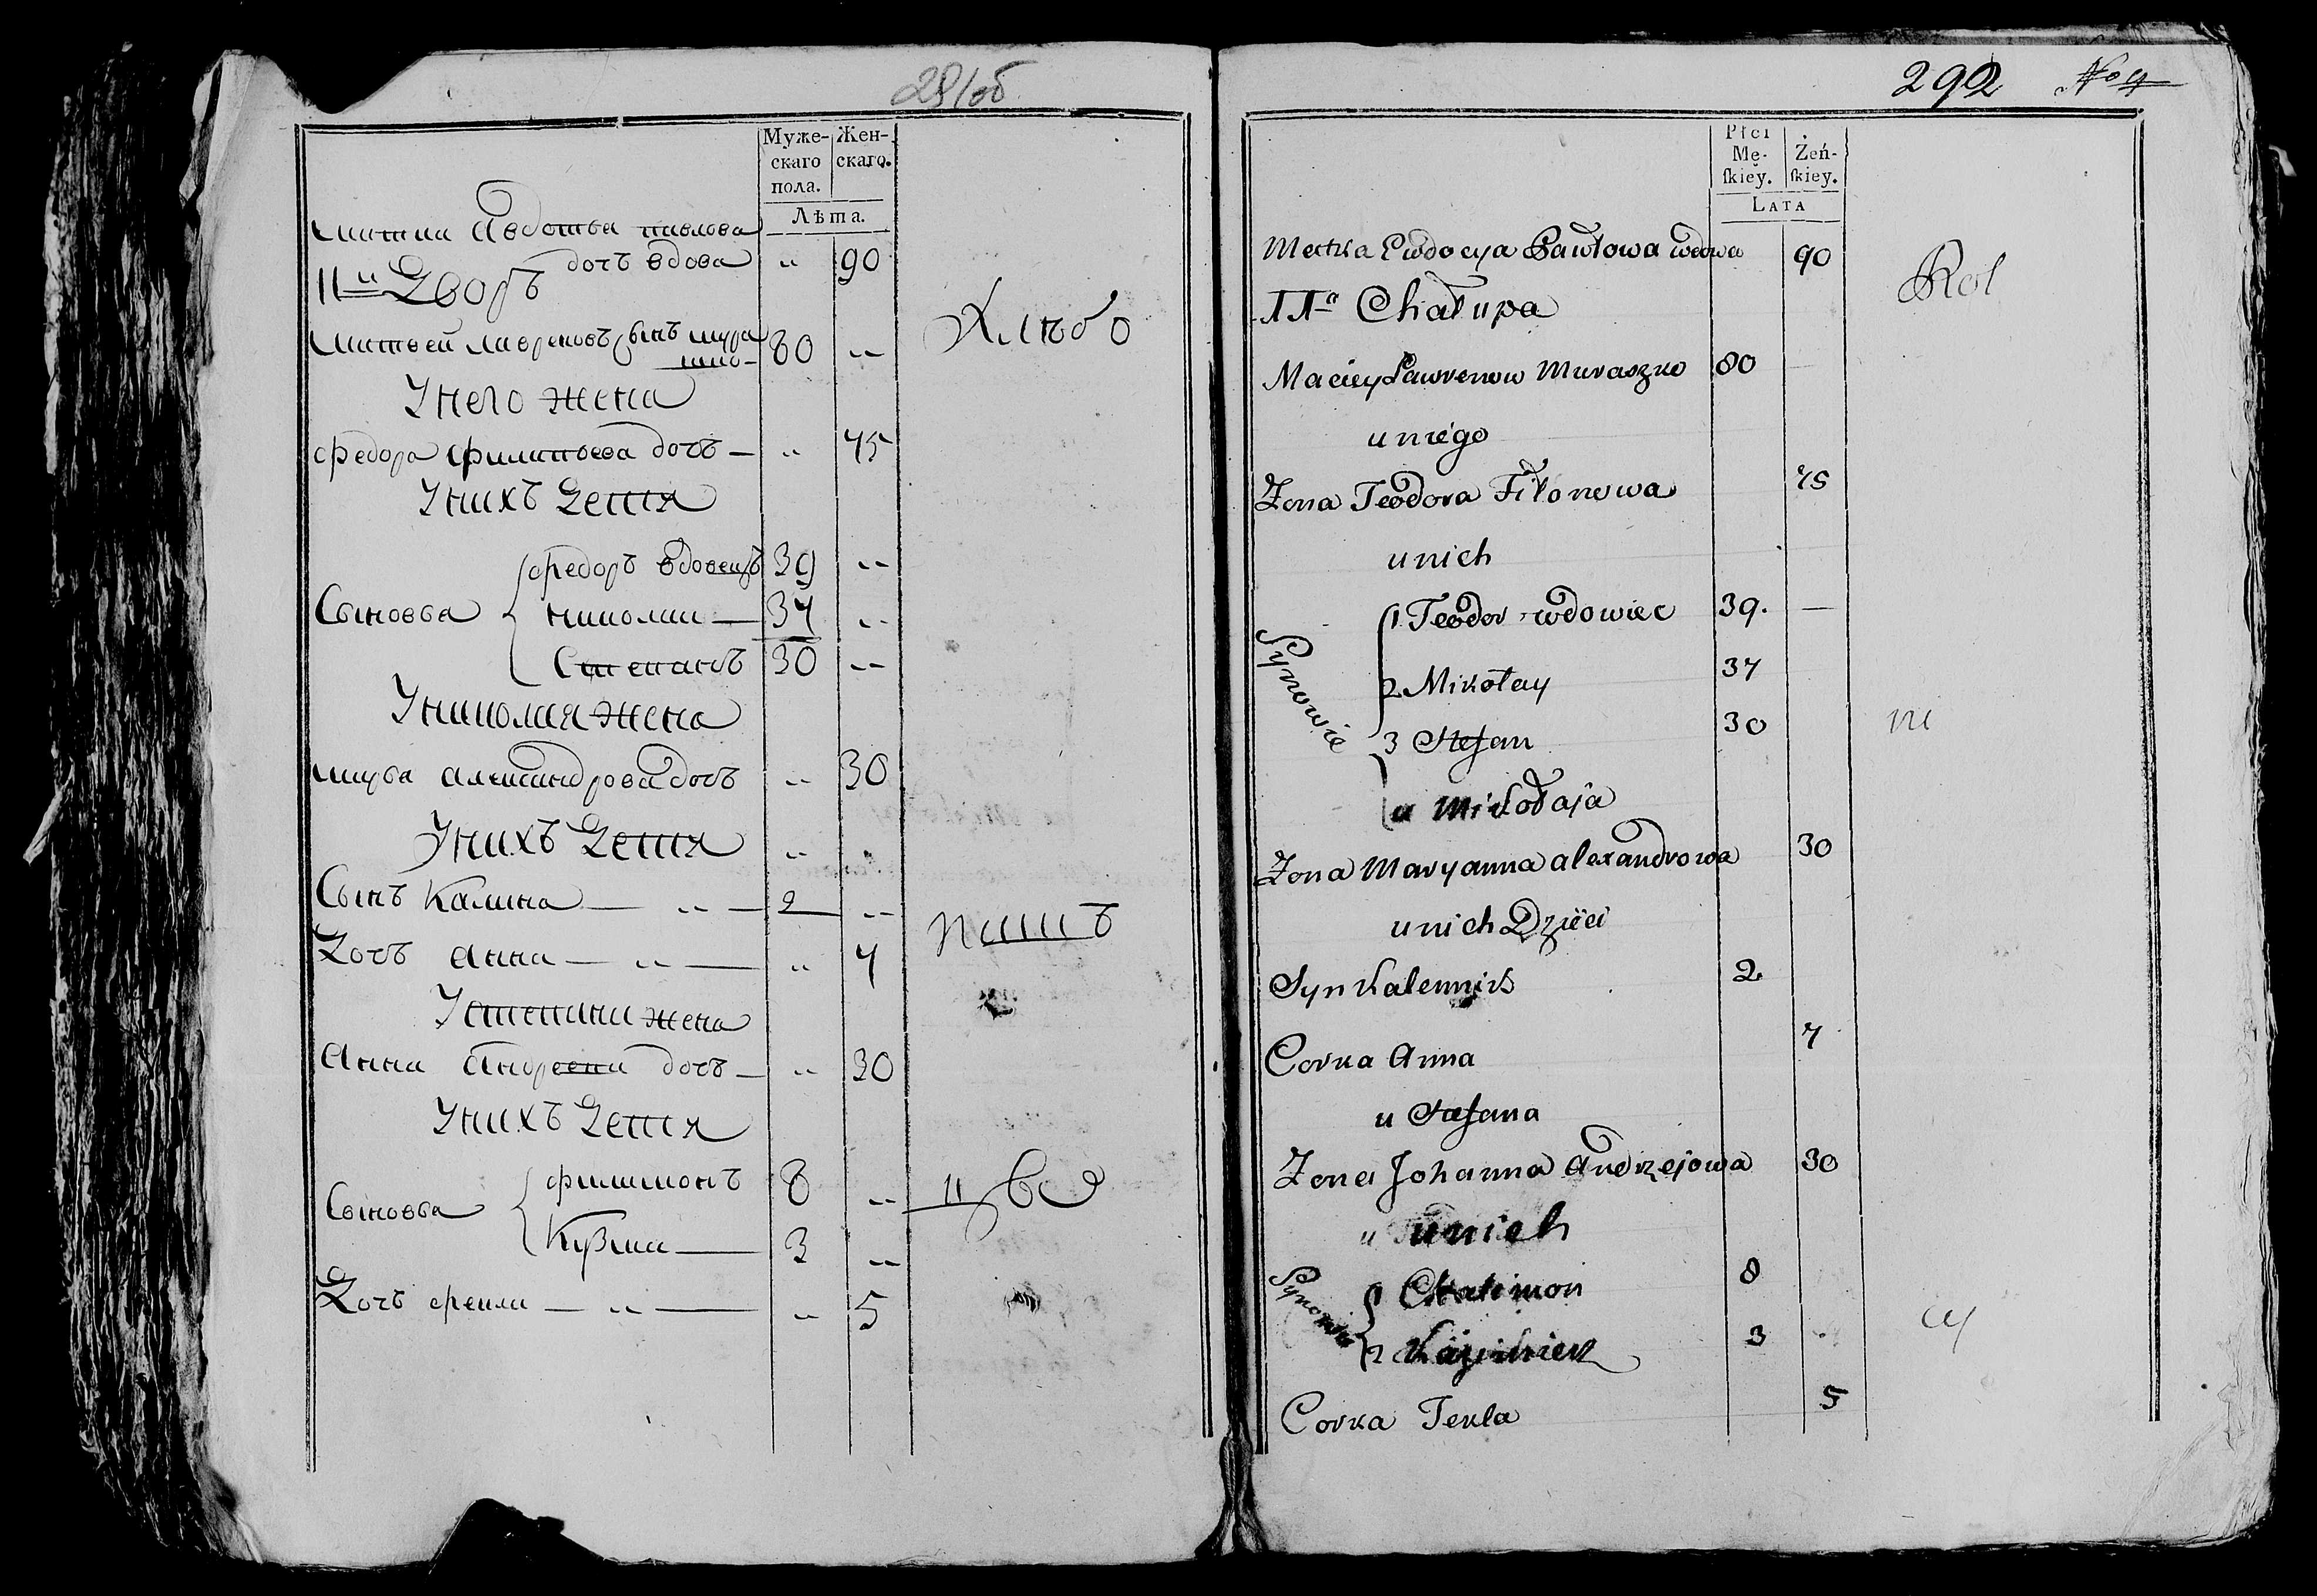 291об
Муже-
скаго
пола.
Жен-
скаго.
Лѣта.
матка Авдотья павлова
дочь вдова " 90
11й Дворъ
матвей лавреновъ сынъ мура
шко 80 --
Унего жена
Федора филипьева дочь — " 75
Унихъ Детя
Сыновья
федоръ вдовецъ 39 --
николаи — 37 --
Степанъ 30 --
Униколая жена
марья александрова дочь -- 30
Унихъ Детя --
Сынъ Калина — -- — 2 --
Дочь анна — -- — " 7
Устепана жена
Анна Андреева дочь — -- 30
Унихъ Детя
Сыновья
филимонъ 8 --
Кузма — 3 --
Дочь фекла — -- — -- 5
Хлѣбо
пашъ
цы
292 No 4
Płci
Mę-
skiey.
Żeń-
skiey.
LATA
Matka Ewdocya Pawłowa wdowa 90
11a Chałupa
Maciey Lawrenow Muraszko 80 —
uniego
Zona Teodora Fiłonowa 75
unich
Synowie
1 Teodor wdowiec 39. —
2 Mikołay 37
3 Stefan 30
u Mikołaja
Zona Maryanna alexandrowa 30
unich Dzieci
Syn Kalennik 2
Corka Anna 7
u Stefana
Zona Johanna Andrzejowa 30
" unich
Synowie
1 Chalimon 8
2 Kazimierz 3
Corka Tekla 5
Rol
ni
cy